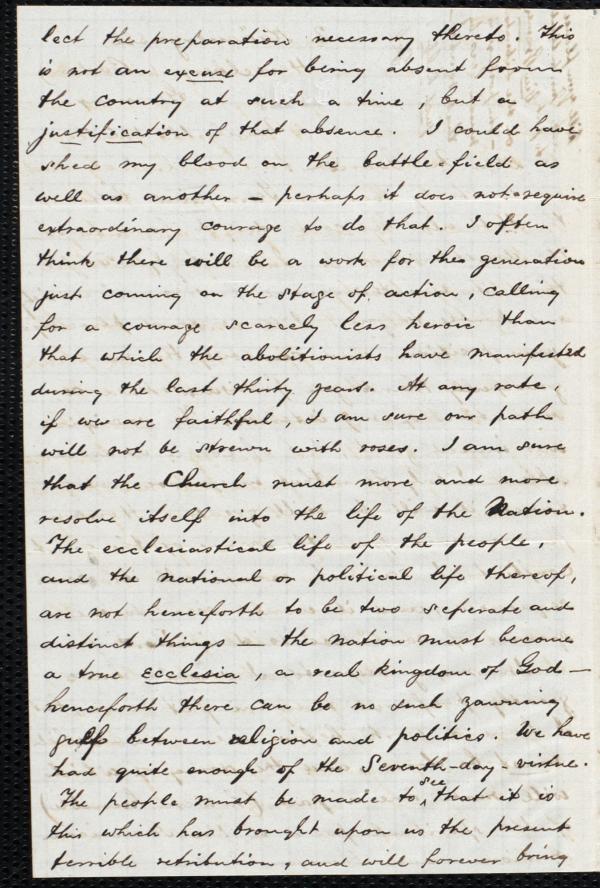 lect the preparation necessary thereto. This
is not an excuse for being absent from
the country at such a time, but a
justification of that absence. I could have
shed my blood on the battle-field as
well as another - perhaps it does not require
extraordinary courage to do that. I often
think there will be a work for the generation
just coming on the stage of action, calling
for a courage scarcely less heroic than
that which the abolitionists have manifested
during the last thirty years. At any rate,
if we are faithful, I am sure our path
will not be strewn with roses. I am sure
that the Church must more and more
resolve itself into the life of the Nation.
The ecclesiastical life of the people,
and the national or political life thereof,
are not henceforth to be two seperate and
distinct things — the nation must become
a true ecclesia, a real kingdom of God —
henceforth there can be no such yawning
gulfs between religion and politics. We have
had quite enough of the Seventh-day-virtue.
The people must be made to see that it is
this which has brought upon us the present
terrible retribution, and will forever bring